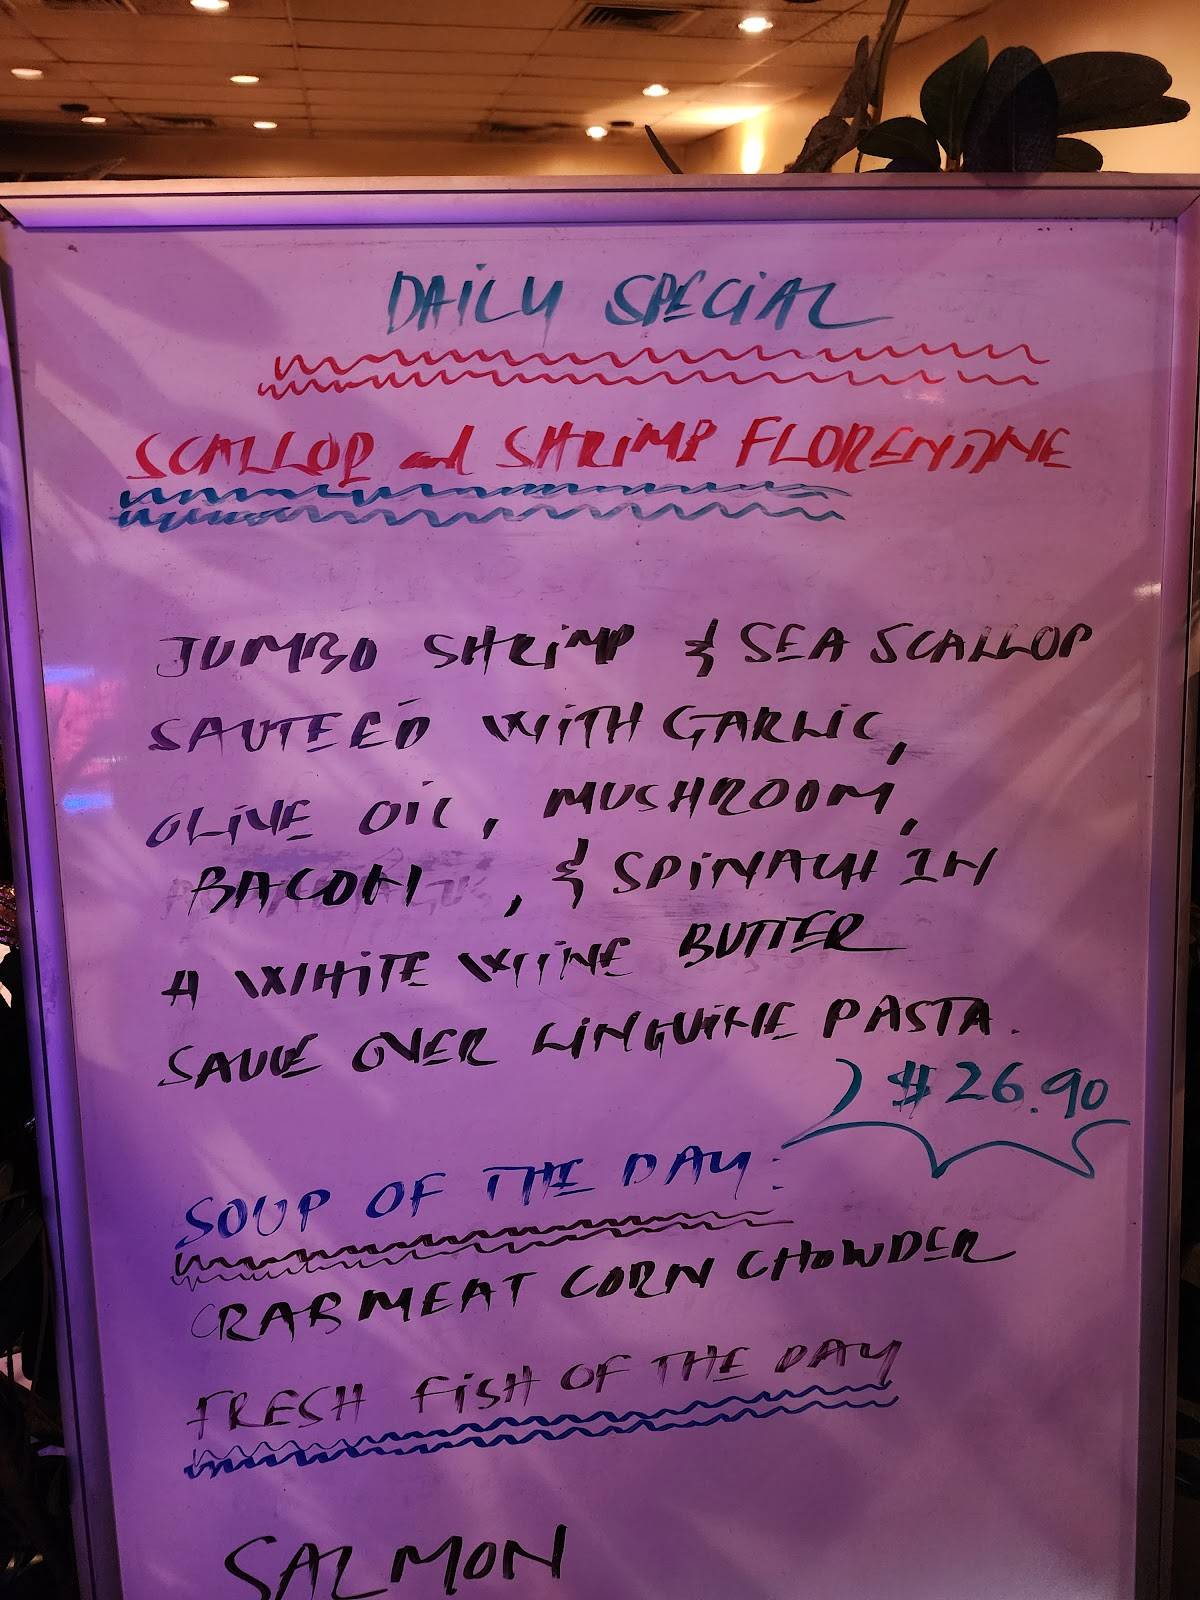 DAILY SPECIAL
SCALLOP and SHRIMP FLORENTINE
JUMBO SHRIMP & SEA SCALLOP
SAUTEED WITH GARLIC,
OLIVE OIL, MUSHROOM,
BACON, & SPINACH IN
A WHITE WIINE BUTTER
SAUCE OVER LINGUINE PASTA.
$26.90
SOUP OF THE DAY:
CRABMEAT CORN CHOWDER
FRESH FISH OF THE DAY
SALMON